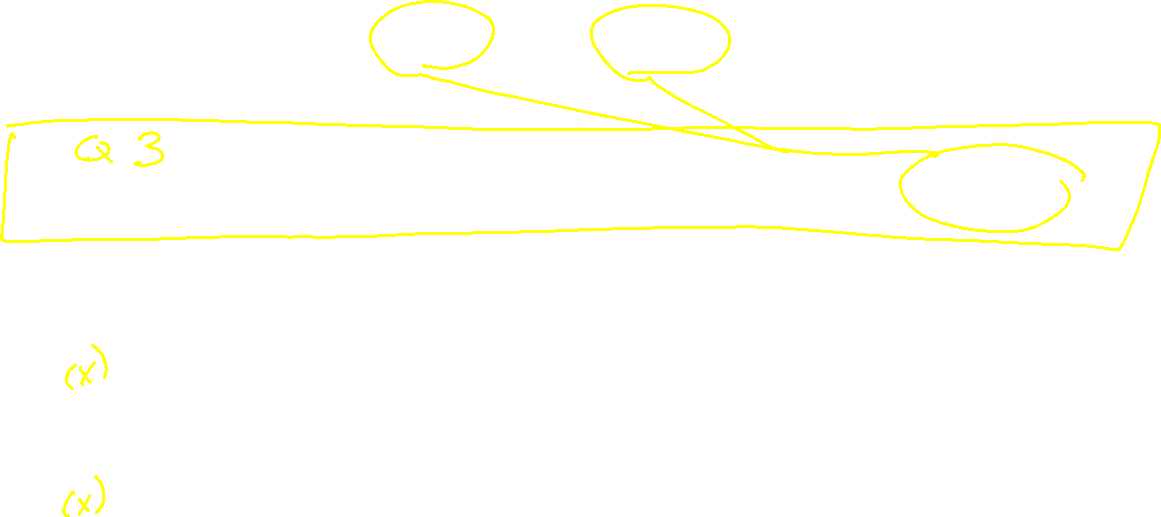 Q 3
(x)
(x)